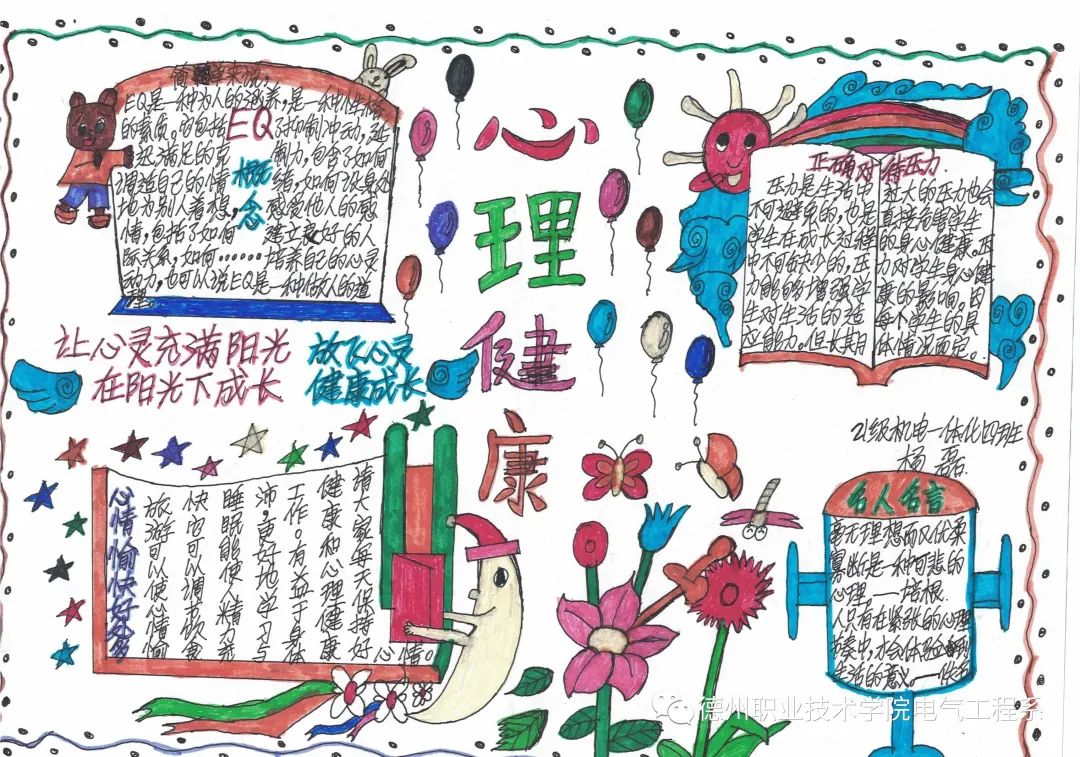 心理健康
简单来说,
EQ是一种为人的涵养,是一种性格
的素质。它包括了抑制冲动,延
迟满足的克制力,包含了如何
调适自己的情绪,如何设身处
地为别人着想,感觉他人的感
情,包括了如何建立良好的人
际关系,如何……培养自己的心灵
动力,也可以说EQ是一种做人的道
理。
EQ
概念
正确对待压力.
压力是生活中
不可避免的,也是
学生在成长过程
中不可缺少的,压
力能够增强学
生对生活的适
应能力。但长期
过大的压力也会
直接危害学生
的身心健康。压
力对学生身心健
康的影响。因
每个学生的具
体情况而定。
让心灵充满阳光
在阳光下成长
放飞心灵
健康成长
21级机电一体化四班
杨磊
心情愉快好处多
请大家每天保持好心情。
健康和心理健康
工作。有益于身体
沛,更好地学习与
睡眠能使人精力
快也可以调节饮食
旅游可以使心情愉
名人名言
毫无理想而又优柔
寡断是一种可悲的
心理 ——培根.
人只有在紧张的心理
中,才会体验到
生活的意义。
德州职业技术学院电气工程系